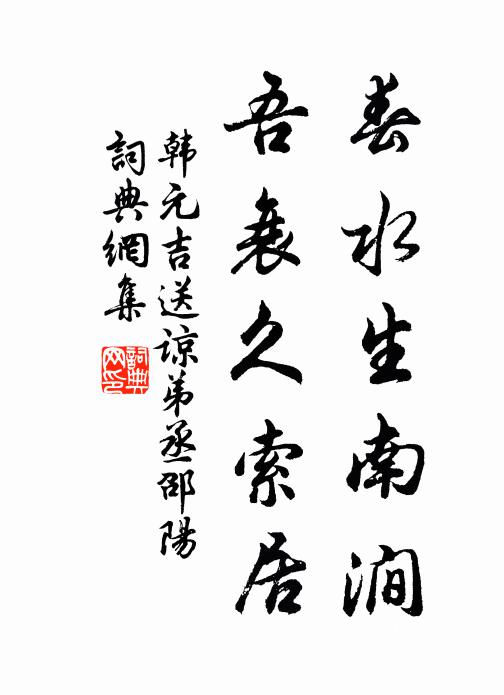 春水生南澗
吾衰久索居
韩元吉送諒弟丞邵陽
詞典網集
詞典網印